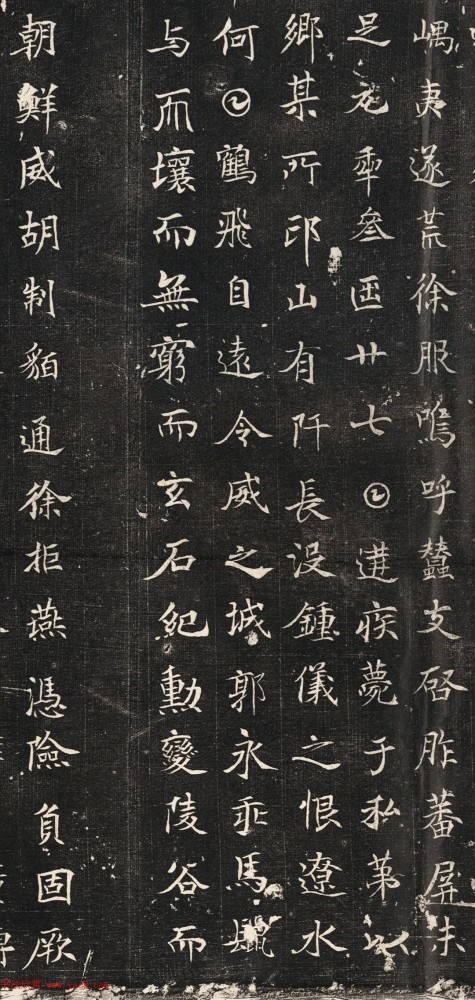 嵎夷遂荒徐服嗚呼蠶支啓胙蕃屏未
足元秊叁𠥱廿七𡆠遘疾薨于私第以
鄉某所邙山有阡長没鍾儀之恨遼水
何𡆠鶴飛自遠令威之城郭永乖馬鬣
与而壤而無窮而玄石紀勳變陵谷而
朝鮮威胡制貊通徐拒燕憑險負固厥